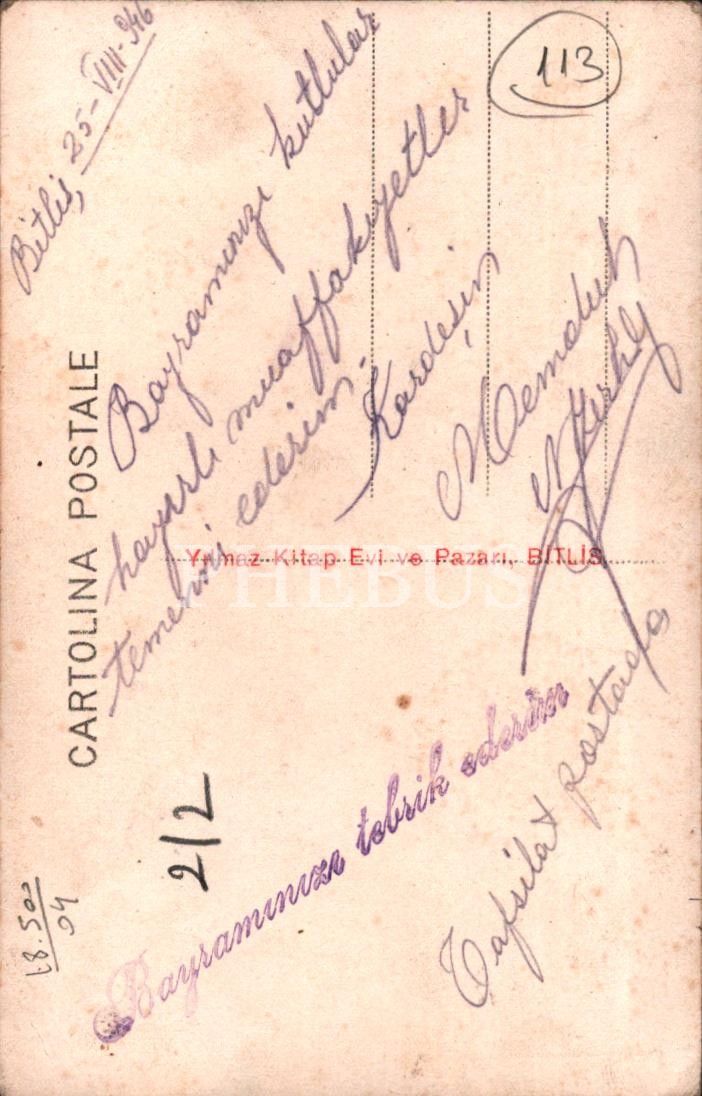 113
Bitlis, 25-VIII-946
Bayramınızı kutlular
hayırlı muaffakıyetler
temenni ederim.
Kardeşin
Memduh
CARTOLINA POSTALE
Yılmaz Kitap Evi ve Pazarı, BİTLİS
PHEBUS
Bayramınızı tebrik ederim
Tafsilat postada
2/2
18.500
94